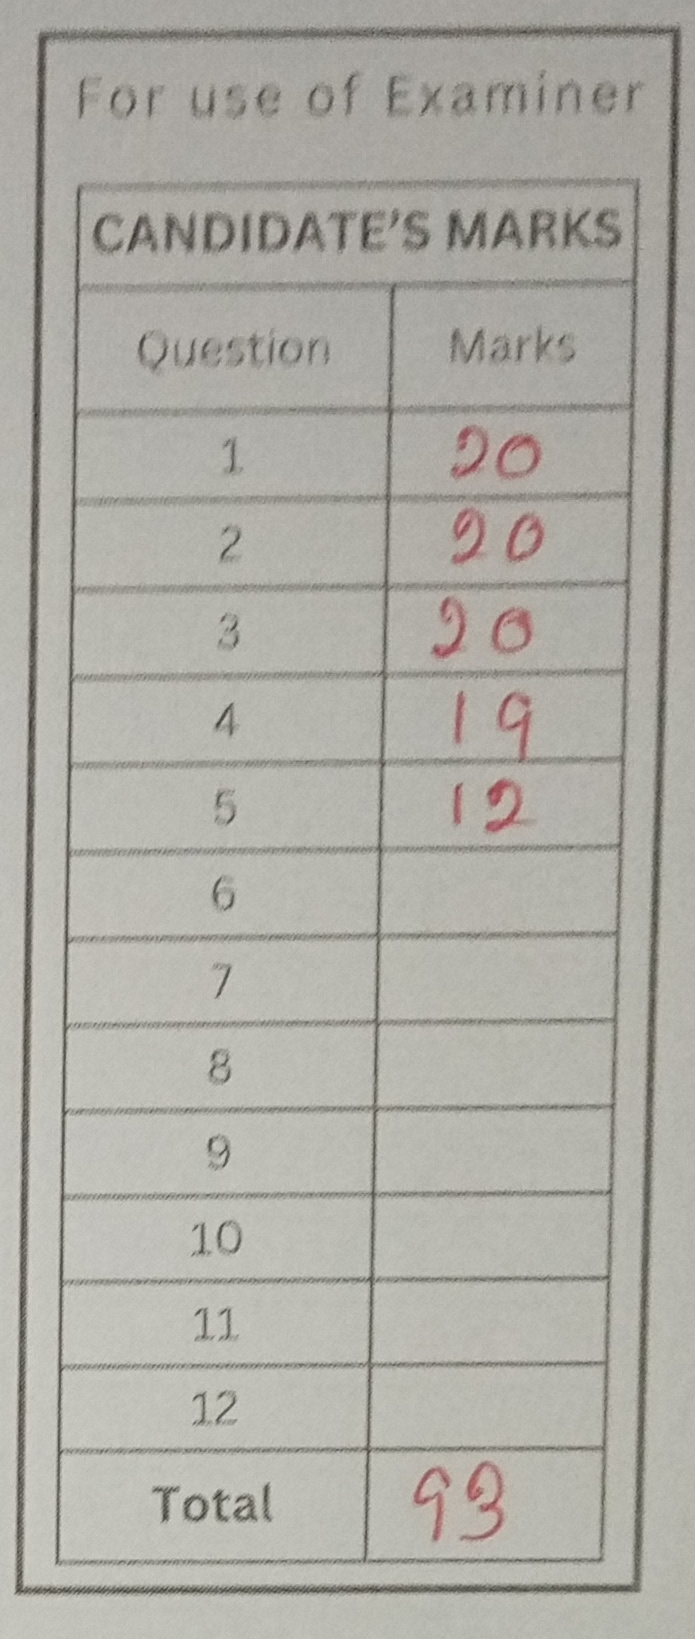 For use of Examiner
CANDIDATE'S MARKS
Question Marks
1 20
2 20
3 20
4 19
5 12
6
7
8
9
10
11
12
Total 93